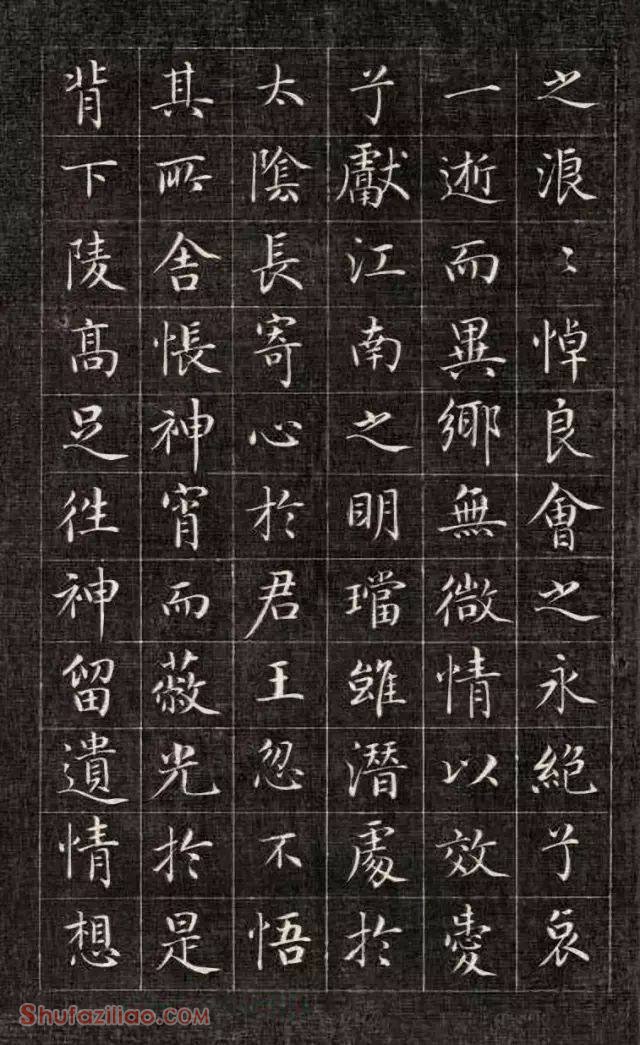 之浪〻悼良會之永絕兮哀
一逝而異鄉無微情以效愛
兮獻江南之明璫雖潛處於
太陰長寄心於君王忽不悟
其所舍悵神宵而蔽光於是
背下陵高足往神留遺情想
Shufaziliao.com